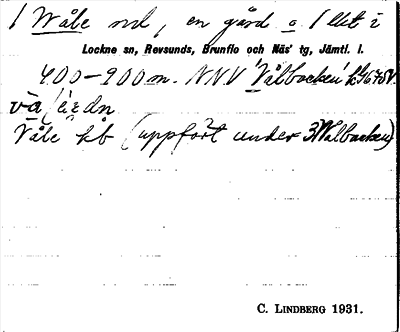 1 Wåle nd, en gård o 1 lht i
Lockne sn, Revsunds, Brunflo och Näs' tg, Jämtl. l.
400–900 m. NNV Vålbacken
Våle hb (uppfört under 3 Vålbacken)
C. LINDBERG 1931.